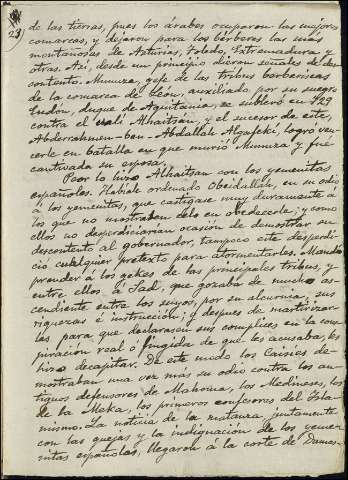 23
de las tierras, pues los árabes ocuparon las mejores
comarcas, y dejaron para los bérberes las más
montañosas de Asturias, Toledo, Extremadura y
otras. Así, desde un principio dieron señales de des-
contento. Munuza, gefe de las tribus berberiscas
de la comarca de León, auxiliado por su suegro
Eudón, duque de Aquitania, se sublevó en 729
contra el valí Alhaitsan, y el sucesor de este,
Abderrahmen-ben-Abdallah Algafeki, logró ven-
cerle en batalla en que murió Munuza y fué
cautivada su esposa.
Peor lo hizo Alhaitsan con los yemenitas
españoles. Habíale ordenado Obeidallah, en su odio
á los yemenitas, que castigase muy duramente á
los que no mostraban celo en obedecerle; y como
ellos no desperdiciarian ocasión de demostrar su
descontento al gobernador, tampoco este desperdi-
ció cualquier pretexto para atormentarles. Mandó
prender á los gekes de las principales tribus, y
entre ellos á Sad, que gozaba de mucho as-
cendiente entre los suyos, por su alcurnia, sus
riquezas é instrucción; y despues de martirizar-
les para que declarasen sus complices en la cons-
piración real ó fingida de que les acusaba, les
hizo decapitar. De este modo los Caisies de-
mostraban una vez más su odio contra los an-
tiguos defensores de Mahoma, los Medineses, los
de la Meka, los primeros confesores del Isla-
mismo. La noticia de la matanza, juntamente
con las quejas y la indignación de los yeme-
nitas españoles, llegaron á la corte de Damas-